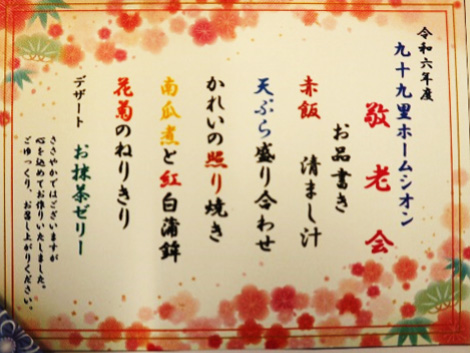 令和六年度
九十九里ホームシオン
敬老会
お品書き
赤飯　清まし汁
天ぷら盛り合わせ
かれいの照り焼き
南瓜煮と紅白蒲鉾
花菊のねりきり
デザート　お抹茶ゼリー
ささやかではございますが
心を込めてお作りいたしました。
ごゆっくり、お召し上がりください。